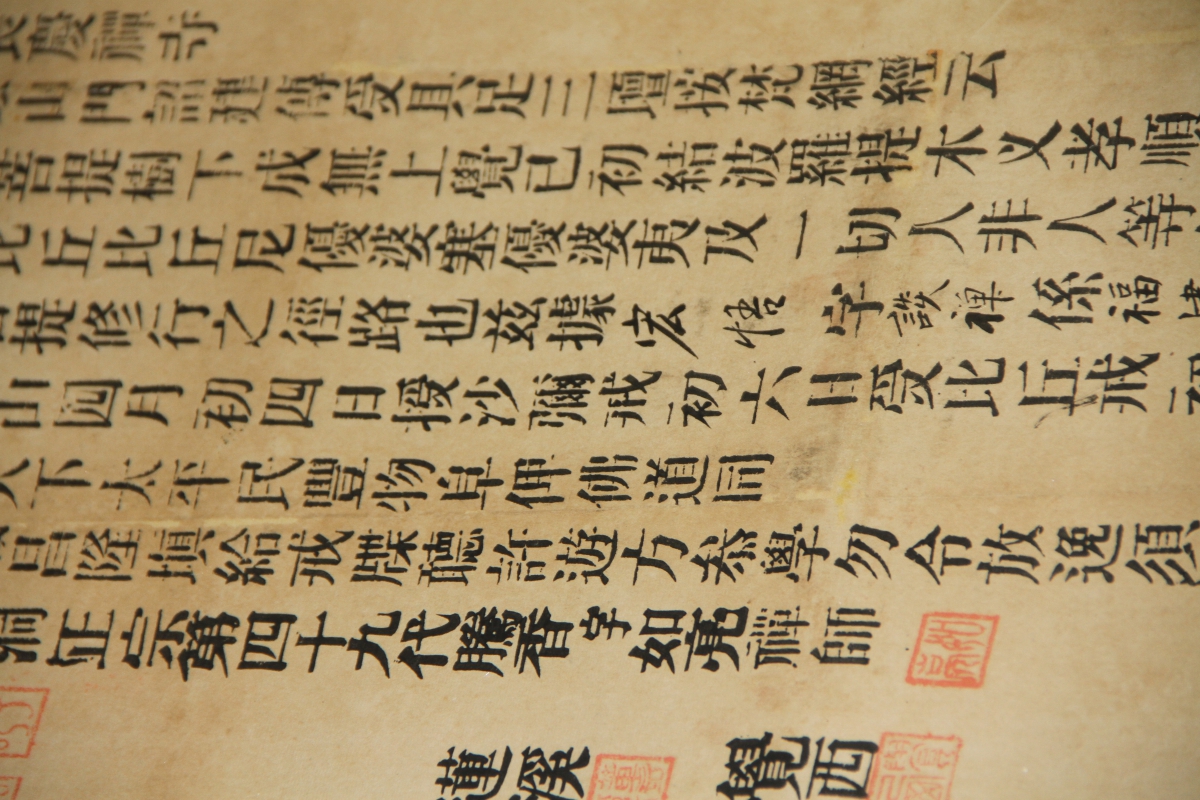 長慶禪寺
山門詔建傳受具足三壇按梵網經云
菩提樹下成無上覺已初結波羅提木义孝順
比丘比丘尼優婆塞優婆夷及一切人非人等
提修行之徑路也兹據宏悟字禅係福
山四月初四日授沙彌戒初六日受比丘戒初
天下太平民豐物阜俾佛道同
昌隆填給戒牒聽許遊方叅學勿令放逸須
洞正宗第四十九代騰香字如亮禪師
蓮溪
覺西